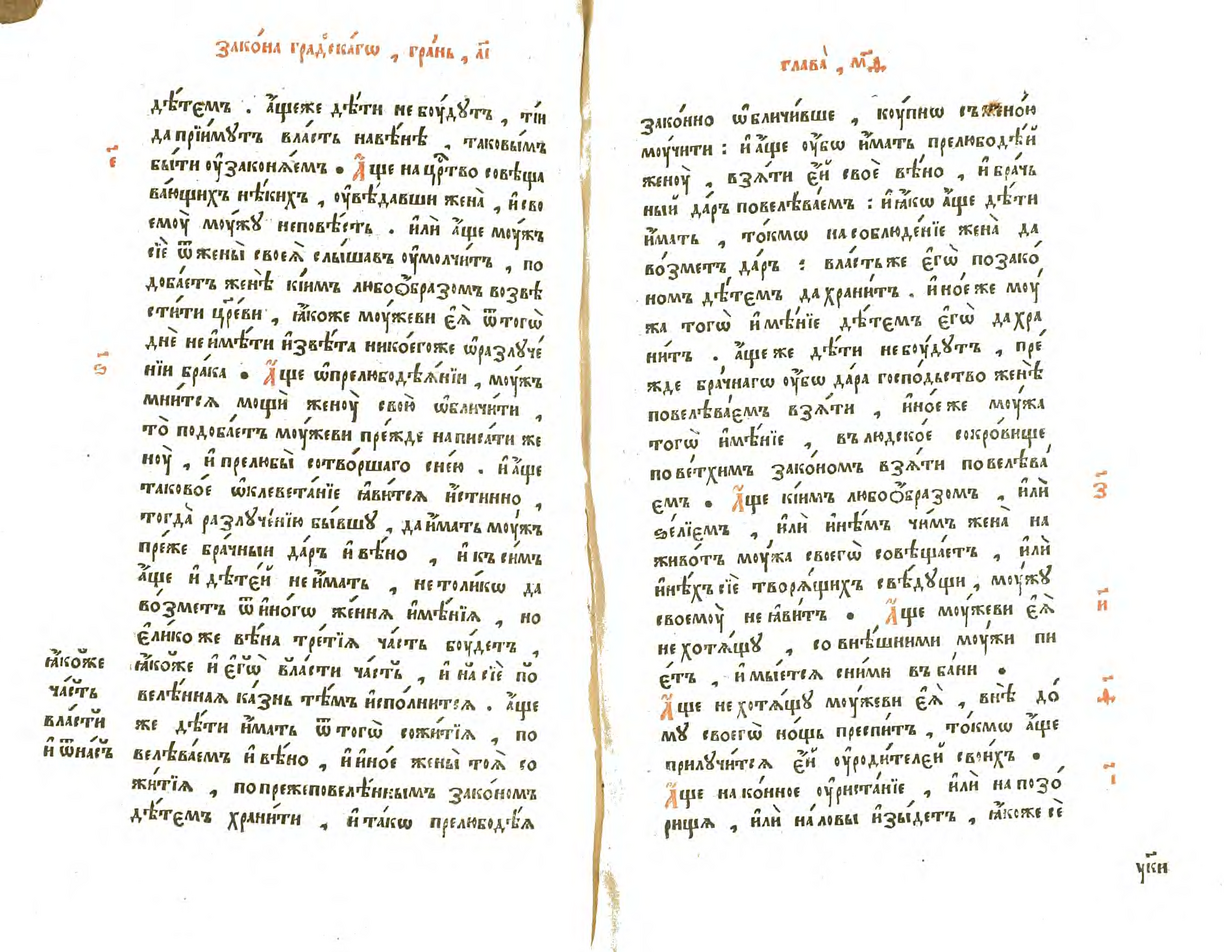 Зако́на градскáгѡ , грáнь , а҃і
дѣ́тємъ . а҆́щеже дѣ́ти небоу́дутъ , ті́и
дапрїи́мутъ вла́сть навѣ́нѣ , таковы́мъ
е҃
бы́ти оу҆законѧ́ємъ • А҆́ще нацр҃тво совѣща
ва́ющихъ нѣ́кихъ , оу҆вѣ́давши жена̀ , и҆сво
емоу̀ моу́жу неповѣ́сть . и҆лѝ а҆́ще моу́жъ
сїѐ ѿжены̀ своеѧ̀ слы́шавъ оу҆молчи́тъ , по
доба́етъ женѣ̀ кі́имъ любоѻ҆́бразомъ возвѣ
сти́ти цр҃еви , ꙗ҆́коже моу́жеви є҆ѧ̀ ѿтогѡ̀
днѐ неи҆мѣ́ти и҆звѣ́та никоего́же ѡ҆разлуче́
ѕ҃
нїи бра́ка • А҆́ще ѡ҆прелюбодѣѧ́нїи , моу́жъ
мни́тсѧ мощѝ женоу̀ свою̀ ѡ҆бличи́ти ,
то̀ подоба́етъ моу́жеви пре́жде написа́ти же
ноу̀ , и҆прелюбы̀ сотво́ршаго снє́ю . и҆а҆́ще
таково́е ѡ҆клевета́нїе ꙗ҆ви́тсѧ и҆́стинно ,
тогда̀ разлуче́нїю бы́вшу , даи҆́мать моу́жъ
пре́же бра́чныи да́ръ и҆вѣ́но , и҆къ си́мъ
а҆́ще и҆дѣте́й неи҆́мать , нето́ликѡ да
во́зметъ ѿи҆но́гѡ же́ннѧ и҆мѣ́нїѧ , но
є҆ли́ко же вѣ́на тре́тїѧ часть боу́детъ ,
ꙗ҆́коже и҆є҆гѡ̀ вла́сти ча́сть , и҆на сїѐ по
веле́ннаѧ ка́знь тѣ́мъ и҆спо́лнитсѧ . а҆́ще
же дѣ́ти и҆́мать ѿтогѡ̀ сожи́тїѧ , по
велѣва́емъ и҆вѣ́но , и҆и҆но́е жены̀ тоѧ̀ со
жи́тїѧ , попрежеповеле́ннымъ зако́номъ
дѣ́тємъ храни́ти , и҆та́кѡ прелюбодѣ́ѧ
ꙗ҆́коже
ча́сть
вла́сти
и҆ ѿна́съ
глава̀ , м҃д ,
зако́нно ѡ҆бличи́вше , коу́пнѡ съжено́ю
моучити : и҆а҆́ще оу҆́бѡ и҆́мать прелюбодѣ́й
женоу̀ , взѧ́ти є҆́й своѐ вѣ́но , и҆бра́ч
ный да́ръ повелѣва́емъ : и҆ꙗ҆́кѡ а҆́ще дѣ́ти
и҆́мать , то́кмѡ насоблюде́нїе жена̀ да
во́зметъ да́ръ : вла́стьже є҆гѡ̀ позако́
номъ дѣ́тємъ дахрани́тъ . и҆но́е же моу́
жа тогѡ̀ и҆мѣ́нїе дѣ́тємъ є҆гѡ̀ дахра
ни́тъ . а҆́ще же дѣ́ти небоу́дутъ , пре́
жде бра́чнагѡ оу҆́бѡ да́ра госпо́дьство женѣ̀
повелѣва́ємъ взѧ́ти , и҆но́е же моу́жа
тогѡ̀ и҆мѣ́нїе , въ людско́е сокро́вище
пове́тхимъ зако́номъ взѧ́ти повелѣва́
з҃
ємъ • А҆́ще кі́имъ любоѻ҆́бразомъ , и҆лѝ
ѕе́лїємъ , и҆лѝ и҆нѣ́мъ чи́мъ жена̀ на
живо́тъ моу́жа своегѡ̀ совѣща́етъ , и҆лѝ
и҆нѣ́хъ сїѐ творѧ́щихъ свѣ́дущи , моу́жу
и҃
своемоу̀ не ꙗ҆ви́тъ • А҆́ще моу́жеви є҆ѧ̀
не хотѧ́щу , совнѣ́шними моу́жи пи
є́тъ , и҆мы́етсѧ сни́ми въба́ни •
ѳ҃
А҆́ще нехотѧ́щу моу́жеви є҆ѧ̀ , внѣ̀ до́
му своегѡ̀ но́щь преспи́тъ , то́кмѡ а҆́ще
прилучи́тсѧ є҆́й оу҆роди́телєй свои́хъ •
і҃
А҆́ще наконное оу҆риста́нїе , и҆лѝ напозо́
рища , и҆лѝ наловы̀ и҆зы́детъ , ꙗ҆́коже се̑
у҆́ки